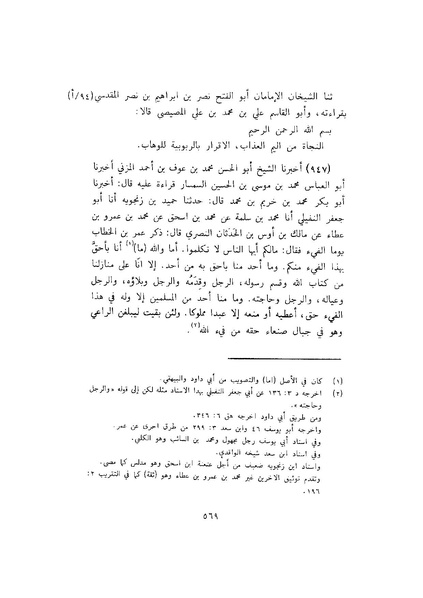 ثنا الشيخان الإمامان أبو الفتح نصر بن ابراهيم بن نصر المقدسي (٩٤/أ)
بقراءته، وأبو القاسم علي بن محمد بن علي المصيصي قالا:
بسم الله الرحمن الرحيم
النجاة من اليم العذاب، الاقرار بالربوبية للوهاب.
(٩٤٧) أخبرنا الشيخ أبو الحسن محمد بن عوف بن أحمد المزني أخبرنا
أبو العباس محمد بن موسى بن الحسين السمسار قراءة عليه قال: أخبرنا
أبو بكر محمد بن خريم بن محمد قال: حدثنا حميد بن زنجويه أنا أبو
جعفر النفيلي أنا محمد بن سلمة عن محمد بن اسحق عن محمد بن عمرو بن
عطاء عن مالك بن أوس بن الحَدَثان النصري قال: ذكر عمر بن الخطاب
يوما الفيء فقال: مالكم أيها الناس لا تكلموا. أما والله (ما)(١) أنا بأحقَّ
بهذا الفيء منكم. وما أحد منا بأحق به من أحد. إلا انّا على منازلنا
من كتاب الله وقسم رسوله، الرجل وقِدَمُه والرجل وبلاؤه، والرجل
وعياله، والرجل وحاجته. وما منا أحد من المسلمين إلا وله في هذا
الفيء حق، أعطيه أو منعه إلا عبدا مملوكا. ولئن بقيت ليبلغن الراعي
وهو في جبال صنعاء حقه من فيء الله(٢).
(١) كان في الأصل (اما) والتصويب من أبي داود والبيهقي.
(٢) اخرجه د ٣: ١٣٦ عن أبي جعفر النفيلي بهذا الاسناد مثله لكن إلى قوله «والرجل
وحاجته».
ومن طريق أبي داود اخرجه هق ٦: ٣٤٦.
واخرجه أبو يوسف ٤٦ وابن سعد ٣: ٢٩٩ من طرق اخرى عن عمر.
وفي اسناد أبي يوسف رجل مجهول ومحمد بن السائب وهو الكلبي.
وفي اسناد ابن سعد شيخه الواقدي.
واسناد ابن زنجويه ضعيف من أجل عنعنة ابن اسحق وهو مدلس كما مضى.
وتقدم توثيق الآخرين غير محمد بن عمرو بن عطاء وهو (ثقة) كما في التقريب ٢:
١٩٦.
٥٦٩